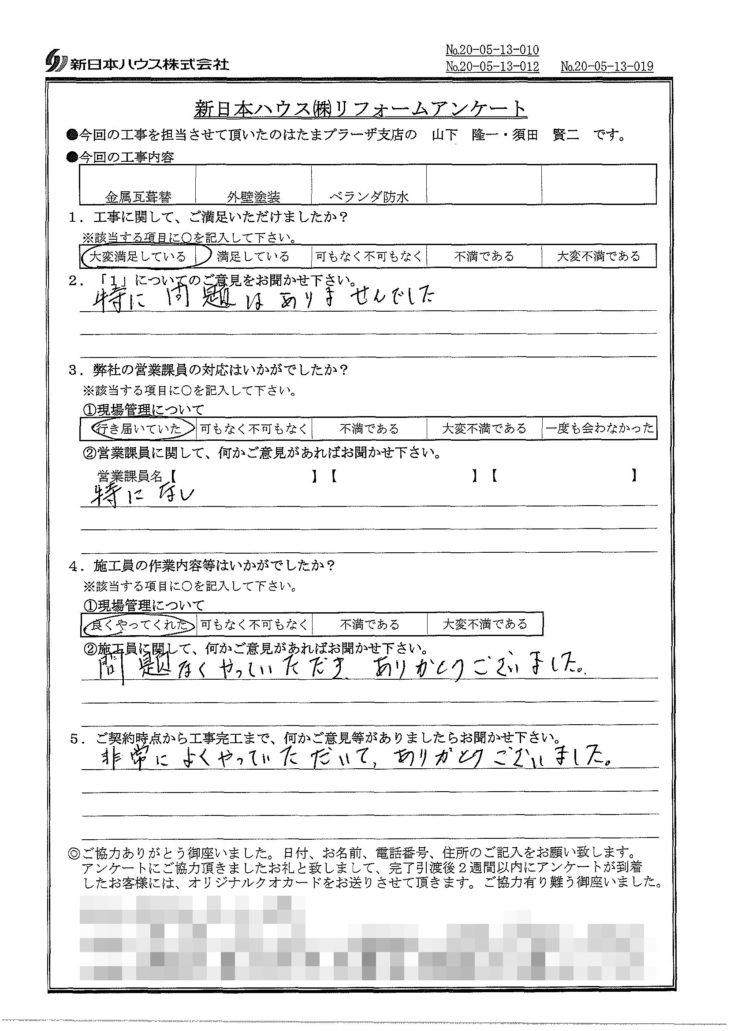 №20-05-13-010
新日本ハウス株式会社
№20-05-13-012 №20-05-13-019
新日本ハウス㈱リフォームアンケート
●今回の工事を担当させて頂いたのはたまプラーザ支店の 山下 隆一・須田 賢二 です。
●今回の工事内容
金属瓦葺替 外壁塗装 ベランダ防水
1．工事に関して、ご満足いただけましたか？
※該当する項目に○を記入して下さい。
大変満足している 満足している 可もなく不可もなく 不満である 大変不満である
2．「1」についてのご意見をお聞かせ下さい。
特に問題はありませんでした
3．弊社の営業課員の対応はいかがでしたか？
※該当する項目に○を記入して下さい。
①現場管理について
行き届いていた 可もなく不可もなく 不満である 大変不満である 一度も会わなかった
②営業課員に関して、何かご意見があればお聞かせ下さい。
営業課員名【 】【 】【 】
特になし
4．施工員の作業内容等はいかがでしたか？
※該当する項目に○を記入して下さい。
①現場管理について
良くやってくれた 可もなく不可もなく 不満である 大変不満である
②施工員に関して、何かご意見があればお聞かせ下さい。
問題なくやっていただき、ありがとうございました。
5．ご契約時点から工事完工まで、何かご意見等がありましたらお聞かせ下さい。
非常によくやっていただいて、ありがとうございました。
◎ご協力ありがとう御座いました。日付、お名前、電話番号、住所のご記入をお願い致します。
アンケートにご協力頂きましたお礼と致しまして、完了引渡後２週間以内にアンケートが到着
したお客様には、オリジナルクオカードをお送りさせて頂きます。ご協力有り難う御座いました。